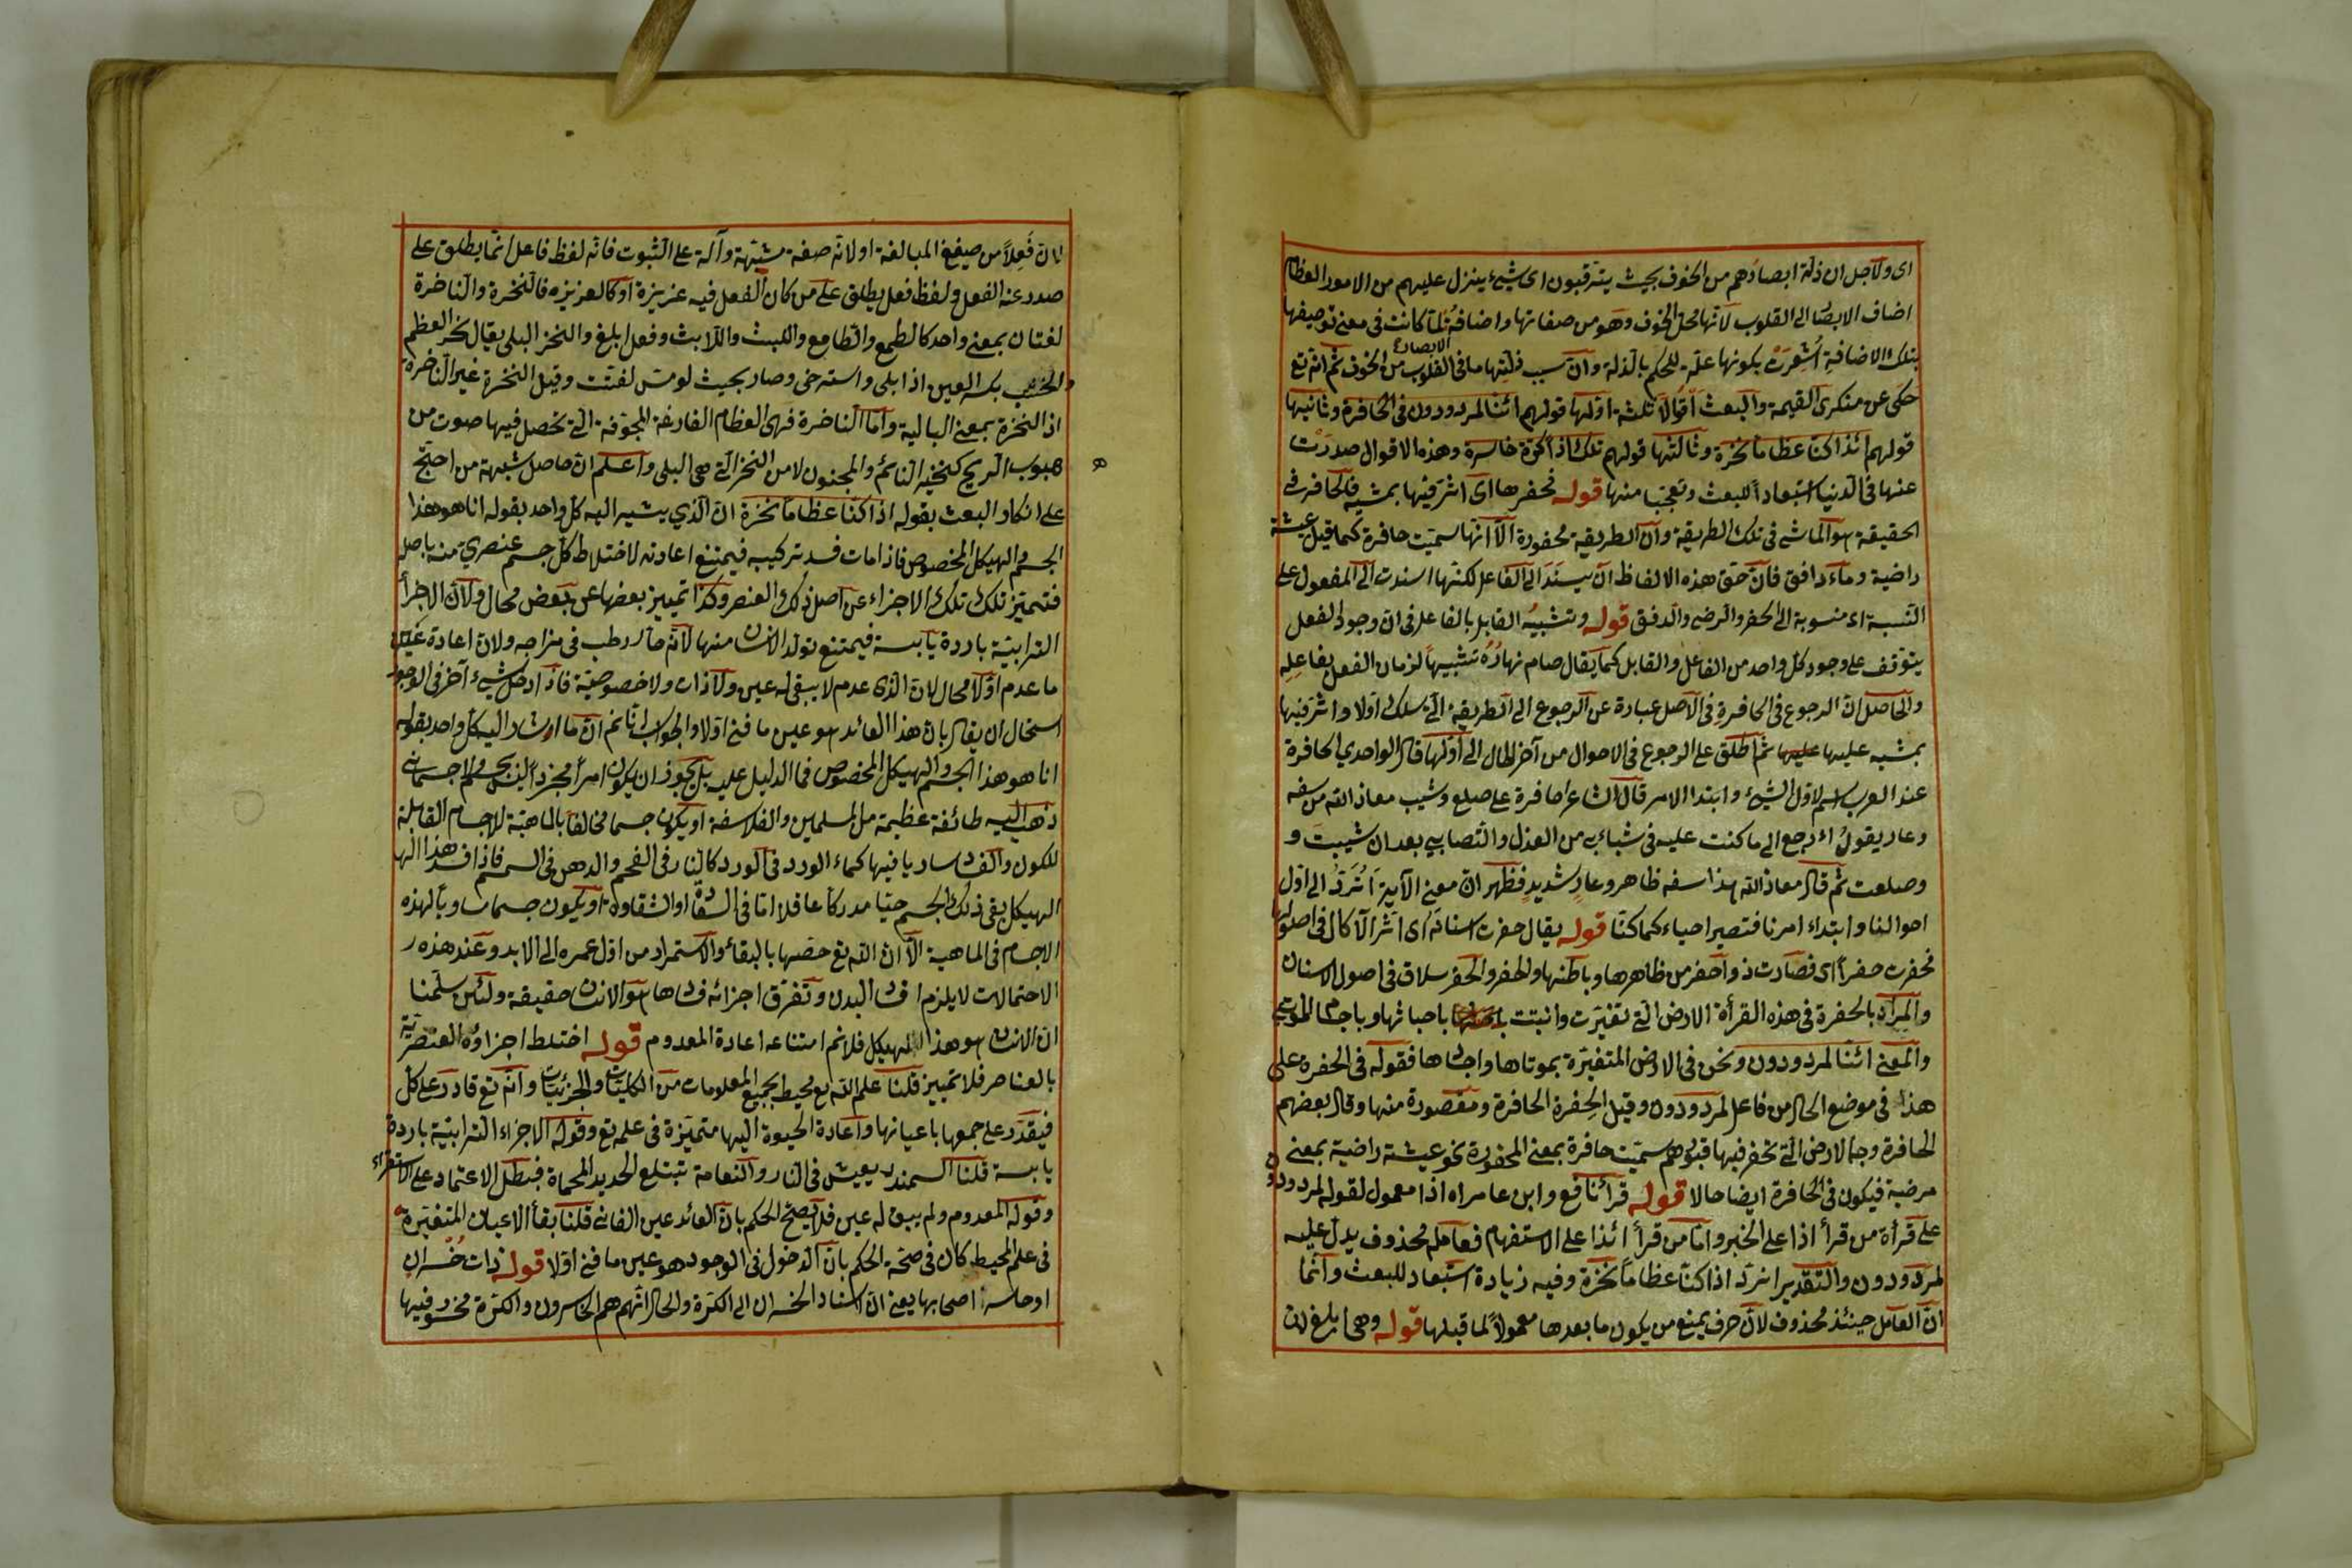 اى ولاجل ان ذلة ابصارهم من الخوف بحيث يترقبون اى شىء ينزل عليهم من الامور العظام
اضاف الابصار الى القلوب لانها محل الخوف وهو من صفاتها واضافة لما كانت فى معنى توصيفها
الابصار
بتلك الاضافة اشعرت بكونها علة للحكم بالذلة وان سبب ذلتها ما فى القلوب من الخوف ثم انه تع
حكى عن منكرى القيمة والبعث اقوالا ثلثة اولها قولهم ائنا لمردودون فى الحافرة وثانيها
قولهم ائذا كنا عظاما نخرة وثالثها قولهم تلك اذا كرة خاسرة وهذه الاقوال صدرت
عنها فى الدنيا استبعادا للبعث وتعجبا منها قوله فحفرها اى اثر فيها بمشيه فالحافر فى
الحقيقة هو الماشى فى تلك الطريقة وان الطريقة محفورة الا انها سميت حافرة كما قيل عيشة
راضية وماء دافق فان حق هذه الالفاظ ان يسند الى الفاعل لكنها اسندت الى المفعول على
النسبة اى منسوبة الى الحفر والرضى والدفق قوله وتشبيه القابل بالفاعل فى ان وجود الفعل
يتوقف على وجود كل واحد من الفاعل والقابل كما يقال صام نهاره تشبيها لزمان الفعل بفاعله
والحاصل ان الرجوع فى الحافرة فى الاصل عبارة عن الرجوع الى الطريقة التى سلك اولا واثر فيها
بمشيه عليها ثم اطلق على الرجوع فى الاحوال من آخر الحال الى اولها قال الواحدي الحافرة
عند العرب اسم لاول الشىء وابتدا الامر قال الشاعر احافرة على صلع وشيب معاذ الله من سفه
وعار يقول اءرجع الى ما كنت عليه فى شبابى من الغزل والتصابى بعد ان شيبت و
وصلعت ثم قال معاذ الله هذا سفه ظاهر وعار شديد فظهر ان معنى الآية أنرد الى اول
احوالنا وابتداء امرنا فتصير احياء كما كنا قوله يقال حفرت اسنانه اى اثر الآكال فى اصولها
فحفرت حفرا اى فصارت ذوا حفر من ظاهرها وباطنها والحفر والحفر سلاق فى اصول الاسنان
والمراد بالحفرة فى هذه القرأة الارض التى تغيرت وانبتت باحباثها وباجسام الموتى
والمعنى ائنا لمردودون ونحن فى الارض المتغيرة بموتاها واجسادها فقوله فى الحفرة على
هذا فى موضع الحال من فاعل لمردودون وقيل الحفرة الحافرة ومقصورة منها وقال بعضهم
الحافرة وجه الارض التى تحفر فيها قبورهم سميت حافرة بمعنى المحفورة نحو عيشة راضية بمعنى
مرضية فيكون فى الحافرة ايضا حالا قوله قرأ نافع وابن عامر اه اذا معمول لقوله لمردودون
على قرأة من قرأ اذا على الخبر واما من قرأ ائذا على الاستفهام فعامله محذوف يدل عليه
لمردودون والتقدير انرد اذا كنا عظاما نخرة وفيه زيادة استبعاد للبعث وانما
ان العامل حينئذ محذوف لان حرف يمنع من يكون ما بعدها معمولا لما قبلها قوله وهى ابلغ لان
لان فعلا من صيغ المبالغة او لانه صفة مشبهة وآلة على الثبوت فانه لفظ فاعل انما يطلق على
صدر عنه الفعل ولفظ فعل يطلق على من كان الفعل فيه غريزة او كالغريزه فالنخرة والناخرة
لغتان بمعنى واحد كالطمع والطامع واللبث واللابث وفعل ابلغ والنخز البلى يقال نخر العظم
بكسر العين اذا بلى واسترخى وصار بحيث لو مس لفتت وقيل النخرة غير الناخرة
اذ النخرة بمعنى البالية واما الناخرة فهى العظام الفارغة المجوفة التى تحصل فيها صوت من
هبوب الريح كنخير النائم والمجنون لا من النخر التى هى البلى واعلم ان حاصل شبهة من احتج
على انكار البعث بقوله اذا كنا عظاما نخرة ان الذي يشير اليه كل واحد بقوله انا هو هذا
الجسم والهيكل المخصوص فاذا مات فسد تركيبه فيمتنع اعادته لاختلاط كل جسم عنصري منه باصله
فتميز تلك الاجزاء عن اصل ذلك العنصر وكذا تمييز بعضها عن بعض محال ولان الاجزأ
الترابية باردة يابسة فيمتنع تولد الانسان منها لانه حار رطب فى مزاجه ولان اعادة عين
ما عدم اولا محال لان الذى عدم لا يبقى له عين ولا ذات ولا خصوصية فاذا دخل شىء آخر فى الوجود
استحال ان يقال بان هذا العائد هو عين ما فنى اولا والجواب انا نم ان ما اشار اليه كل واحد بقوله
انا هو هذا الجسم والهيكل المخصوص فما الدليل عليه بل يجوز ان يكون امرا مجردا ليس بجسم ولا جسمانى
ذهب اليه طائفة عظيمة من المسلمين والفلاسفة او يكون جسما مخالفا بالماهية للاجسام القابلة
للكون والفساد ساريا فيها كماء الورد فى الورد كالنار فى الفحم والدهن فى السمسم فاذا فسد هذا
الهيكل بقى ذلك الجسم حيا مدركا عاقلا اما فى السعادة او الشقاوة او يكون جسما مساويا لهذه
الاجسام فى الماهية الا ان الله تع خصها بالبقاء والاستمرار من اول عمره الى الابد وعند هذه
الاحتمالات لا يلزم افساد البدن وتفرق اجزائه فساد ما هو الانسان حقيقة ولئن سلمنا
ان الانسان هو هذا الهيكل فلا نم امتناعه اعادة المعدوم قوله اختلط اجزاؤه العنصرية
بالعناصر فلا تمييز قلنا علم الله تع محيط بجميع المعلومات من الكليات والجزئيات وانه تع قادر على كل
فيقدر على جمعها باعيانها واعادة الحيوة اليها متميزة فى علمه تع وقوله الاجزاء الترابية باردة
يابسة قلنا السمندر يعيش فى النار والنعامة تبتلع الحديد المحماة فبطل الاعتماد على الاستقراء
وقوله المعدوم ولم يبق له عين فلا يصح الحكم بان العائد عين الفانى قلنا بقأ الاعيان المتغيرة
فى علم المحيط كان فى صحة الحكم بان الدخول فى الوجود هو عين ما فنى اولا قوله ذات خسران
او خاسر اصحابها يعنى ان اسناد الخسران الى الكرة والحال انهم هم الخاسرون والكرة مخسور فيها